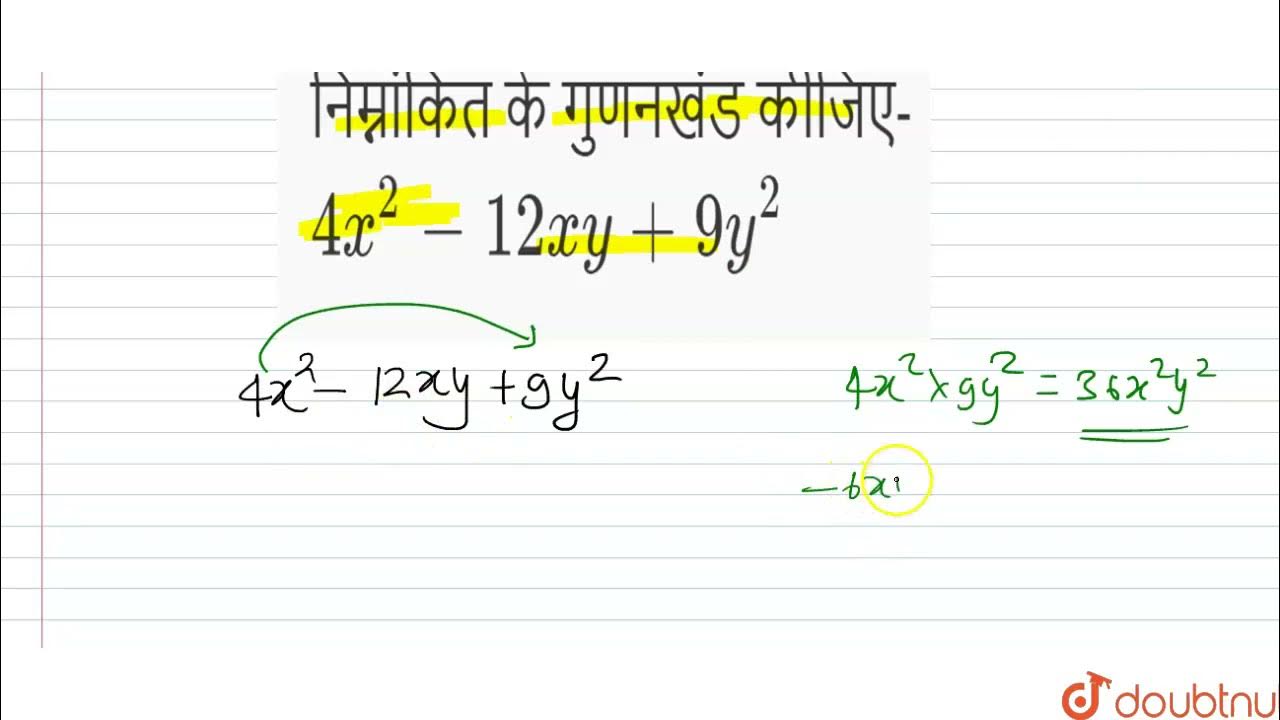 निम्नांकित के गुणनखंड कीजिए-
4x² − 12xy + 9y²
4x² − 12xy + 9y²
4x² × 9y² = 36x²y²
− 6x
doubtnut